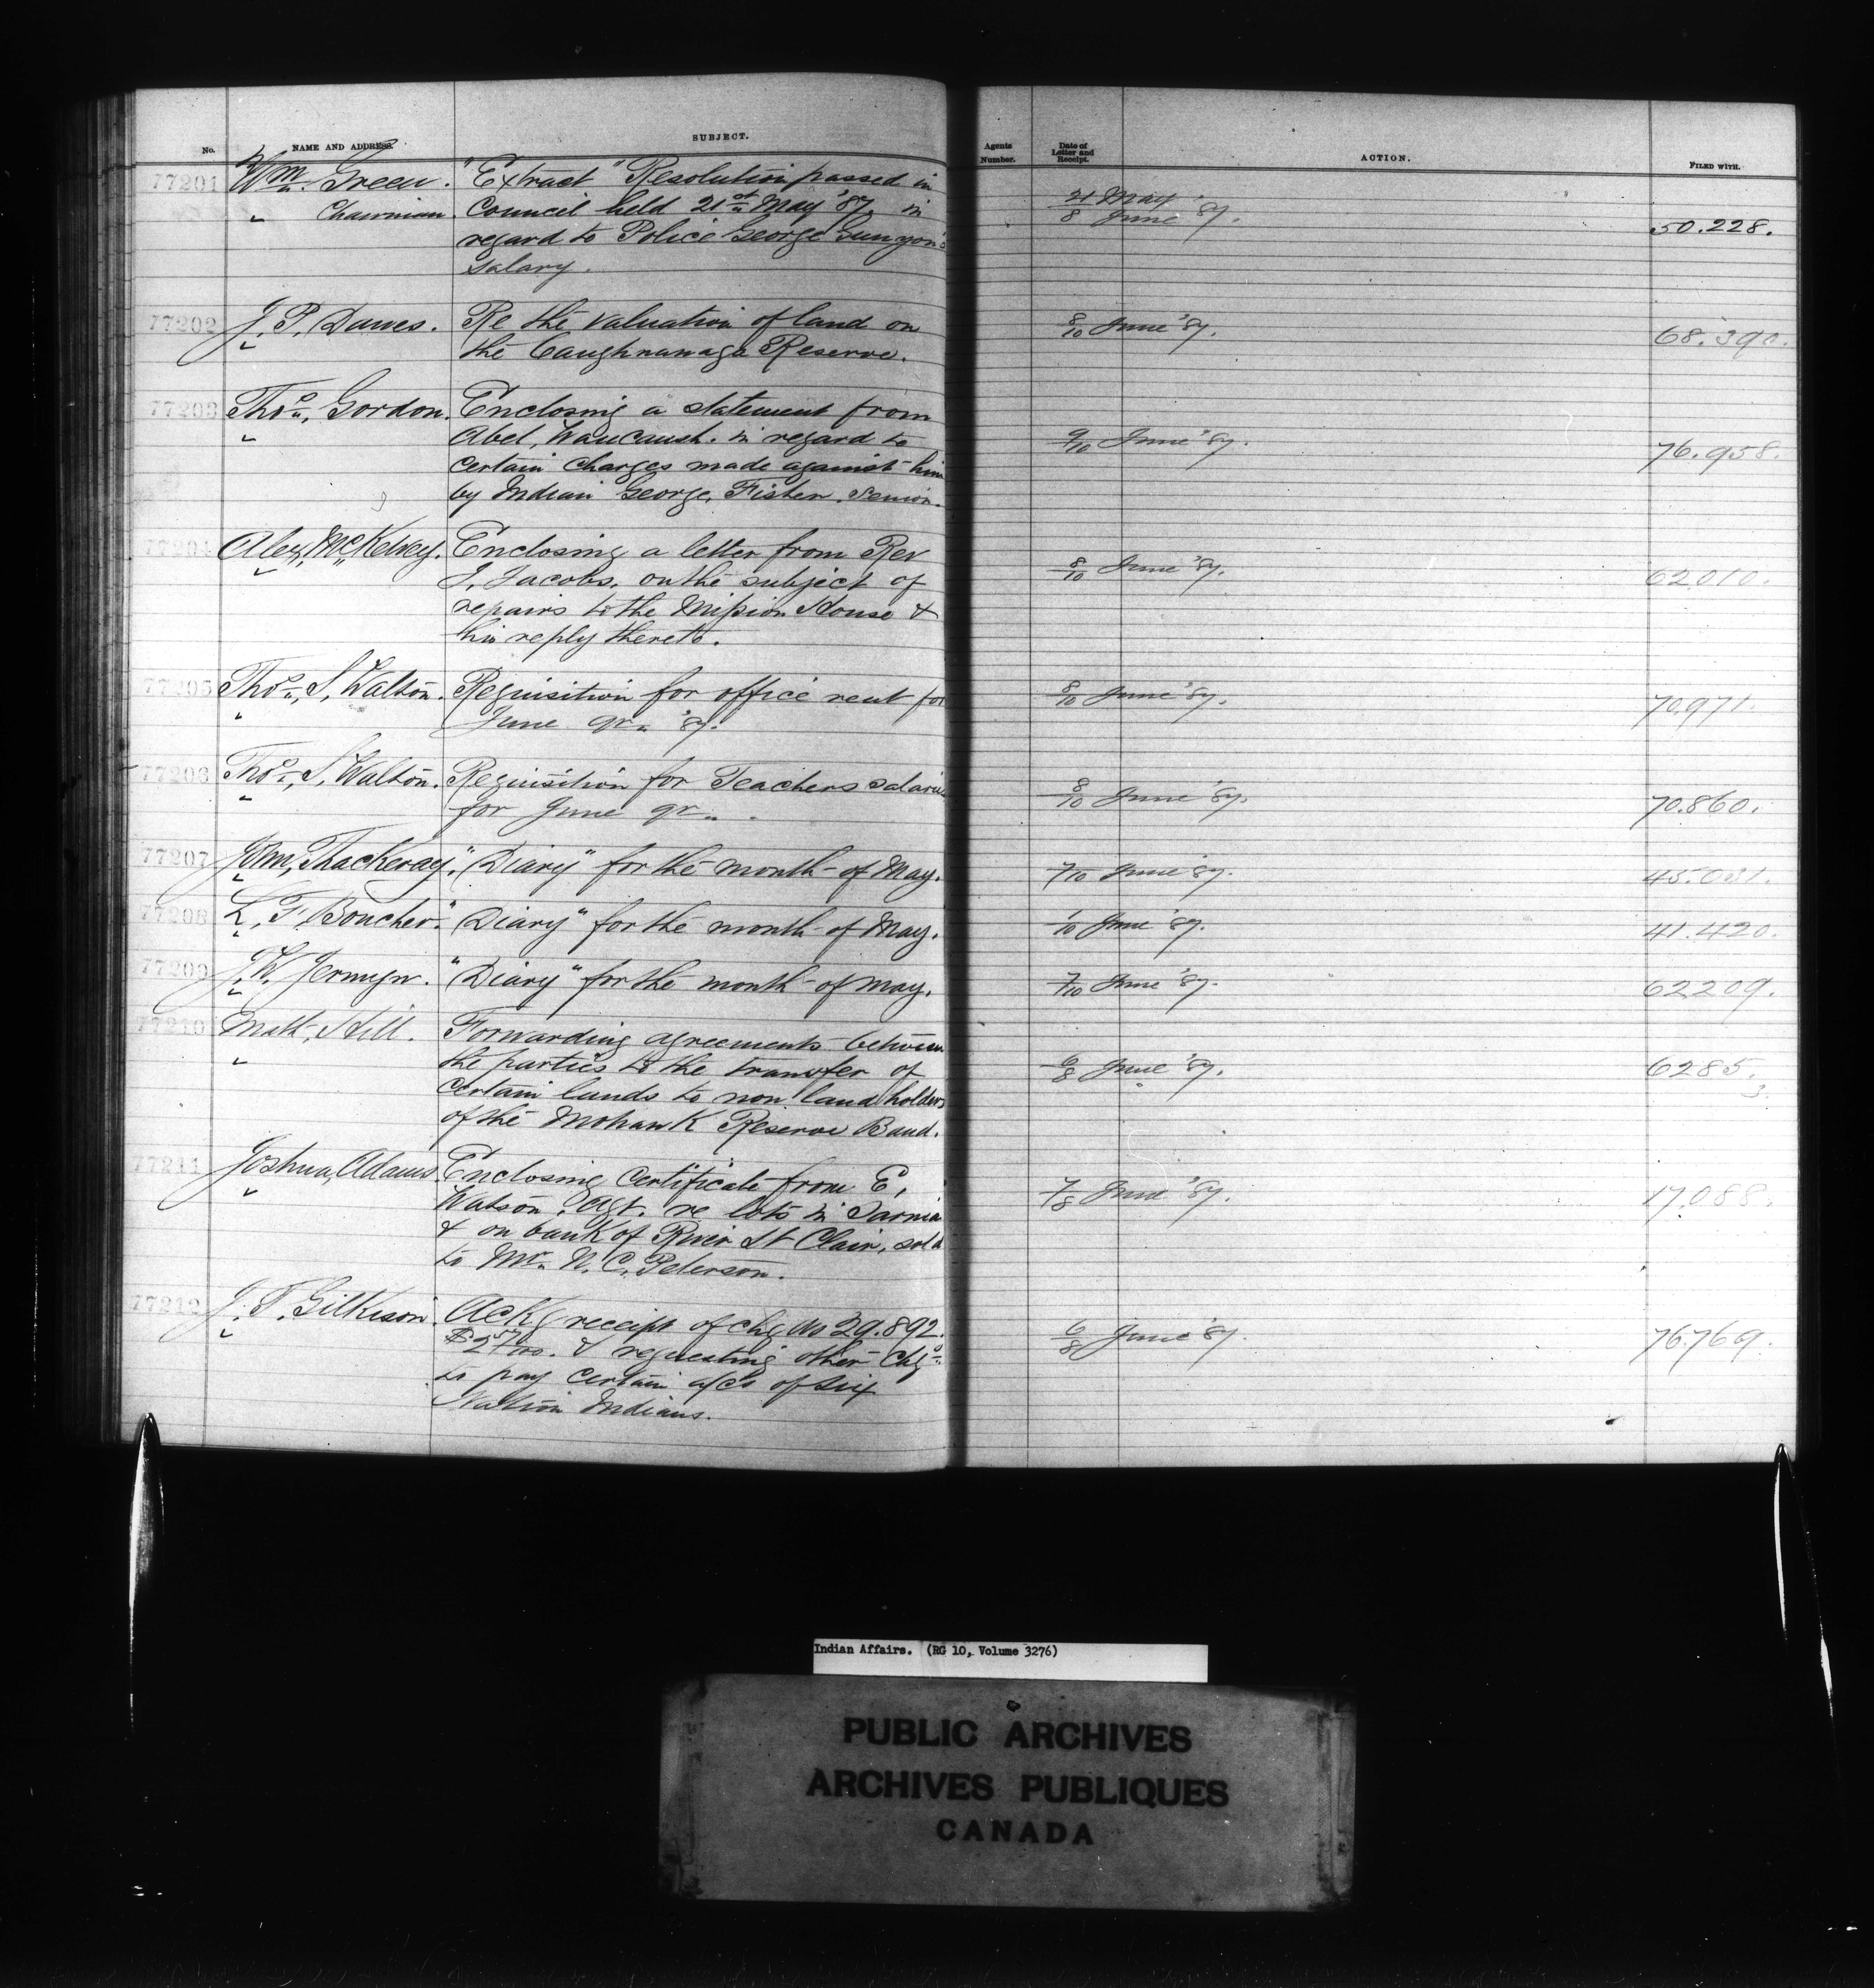 No.
NAME AND ADDRESS.
SUBJECT.
Agents Number.
Date of Letter and Receipt.
ACTION.
FILED WITH.
77201 Wm. Green. "Extract" Resolution passed in
" Chairman. Council held 21st May '87, in 21 May / 8 June '87. 50.228.
regard to Police George
salary.
77202 J. P. Dawes. Re the valuation of land on 8/10 June '87. 68.390.
the Caughnawaga Reserve.
77203 Thos. Gordon. Enclosing a statement from
Abel, Waucaush. in regard to 9/10 June '87. 76.958.
certain charges made against him
by Indian George, Fisher, Senior.
77204 Alex, McKelvey. Enclosing a letter from Rev
J. Jacobs, on the subject of 8/10 June '87. 62010.
repairs to the Mission House &
his reply thereto.
77205 Thos. S, Walton. Requisition for office rent for 8/10 June '87. 70971.
June qr. '87.
77206 Thos. S, Walton. Requisition for Teachers salaries
for June qr. 8/10 June '87. 70.860.
77207 John, Thackeray. "Diary" for the month of May. 7/10 June '87. 45.031.
77208 L, F, Boucher. "Diary" for the month of May. /10 June '87. 41.420.
77209 J. W. Jermyn. "Diary" for the month of May. 7/10 June '87. 62209.
77210 Matt, Hill. Forwarding agreements between
the parties to the transfer of 6/8 June '87. 6285.
certain lands to non land holders 3.
of the Mohawk Reserve Band.
77211 Joshua, Adams. Enclosing Certificate from E,
Watson, Agt. re lots in Sarnia 7/8 June '87. 17.088.
& on bank of River St Clair, sold
to Mr. N. C. Peterson.
77212 J. T. Gilkison. Ackg receipt of chq No 29.892.
& requesting other Chqs 6/8 June '87. 76.769.
to pay certain a/cs of Six
Nation Indians.
Indian Affairs. (RG 10, Volume 3276)
PUBLIC ARCHIVES
ARCHIVES PUBLIQUES
CANADA